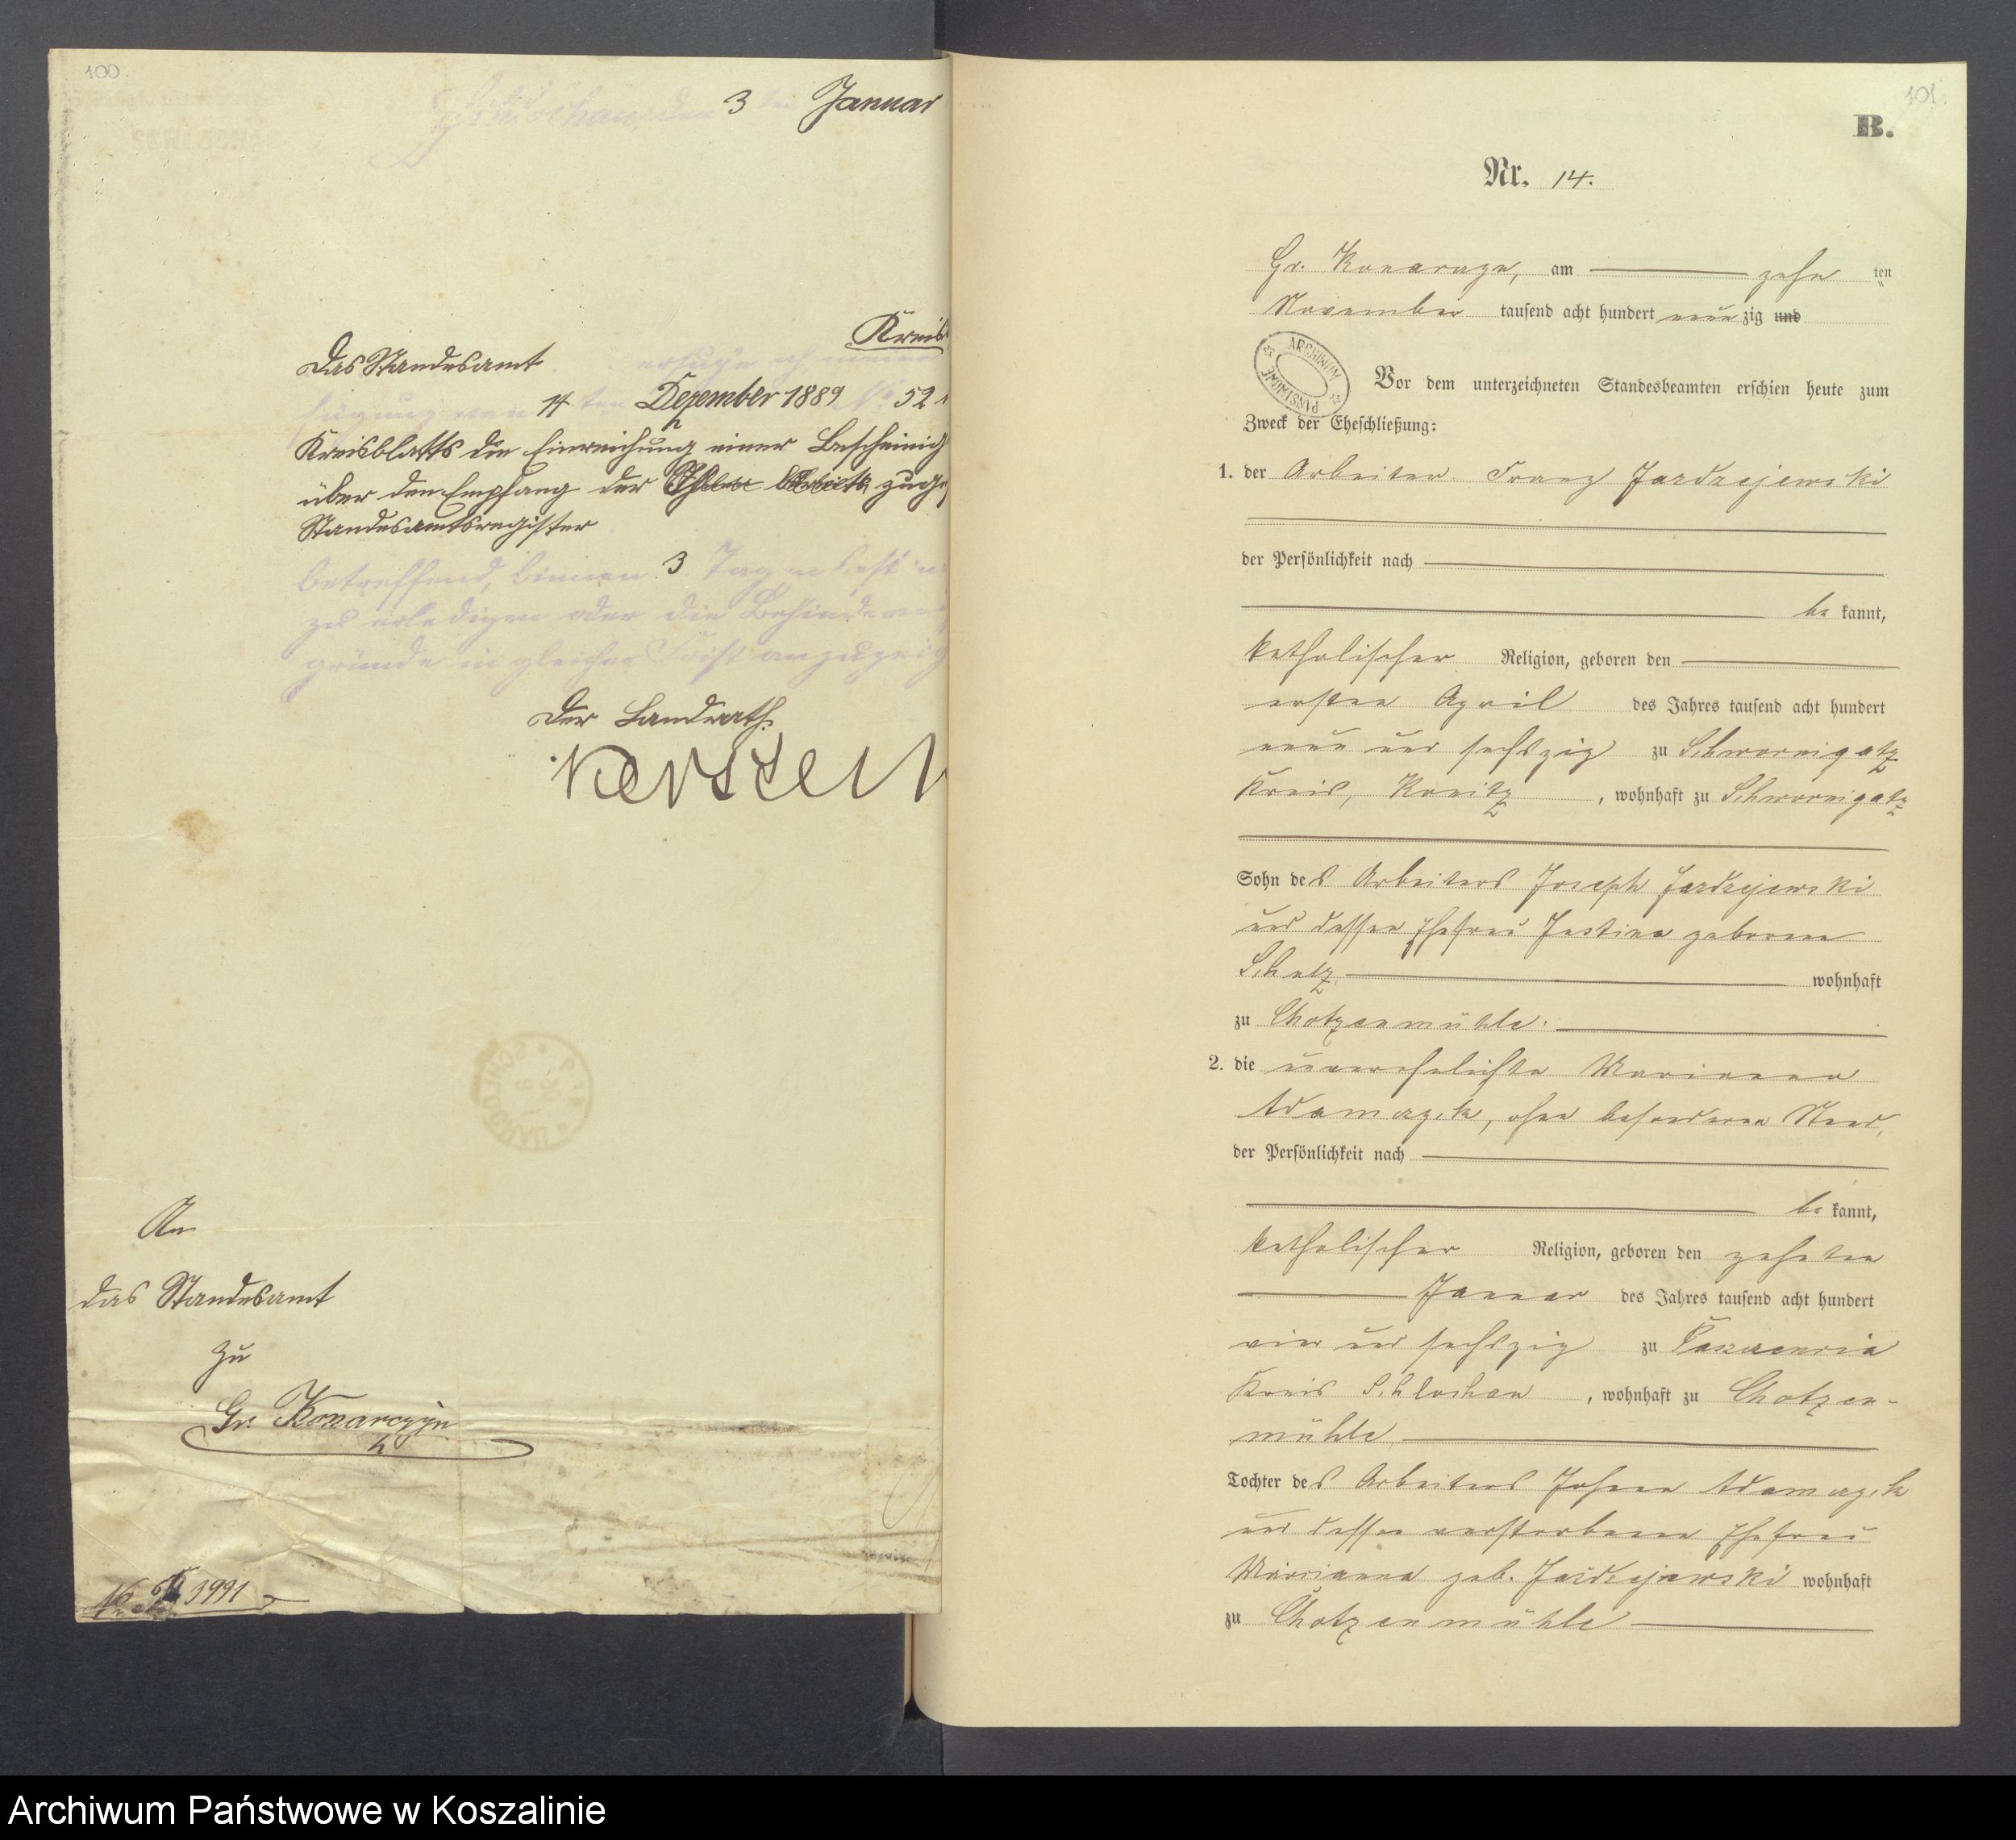 100.
Schlochau, den 3 ten Januar
Kreis
Das Standesamt ersuche ich meine
fügung vom 14 ten Dezember 1889 No 52
Kreisblatts die Einreichung einer Bescheinig
über den Empfang der zuge
Standesamtsregister
betreffend, binnen 3 Tagen
zu erledigen oder die Behinderung
gründe in gleicher Frist anzuzeig
Der Landrath.
Kersten
An
das Standesamt
zu
Gr. Konarczyn
3991
101.
B.
Nr. 14.
Gr. Konarczyn, am zehn ten
November tausend acht hundert neun zig und
ARCHIWUM PAŃSTWOWE
Vor dem unterzeichneten Standesbeamten erschien heute zum
Zweck der Eheschließung:
1. der Arbeiter Franz Jazdzejewski
der Persönlichkeit nach
be kannt,
katholischer Religion, geboren den
ersten April des Jahres tausend acht hundert
neun und sechszig zu Schwornigatz
Kreis, Konitz, wohnhaft zu Schwornigatz
Sohn des Arbeiters Joseph Jazdzejewski
und dessen Ehefrau Justina geborene
Schatz wohnhaft
zu Chotzenmühle.
2. die unverehelichte Marianna
Adamczyk, ohne besonderen Stand,
der Persönlichkeit nach
be kannt,
katholischer Religion, geboren den zehnten
Januar des Jahres tausend acht hundert
vier und sechszig zu
Kreis Schlochau, wohnhaft zu Chotzen-
mühle
Tochter des Arbeiters Johann Adamczyk
und dessen verstorbenen Ehefrau
Marianna geb. Jazdzejewski wohnhaft
zu Chotzenmühle
Archiwum Państwowe w Koszalinie